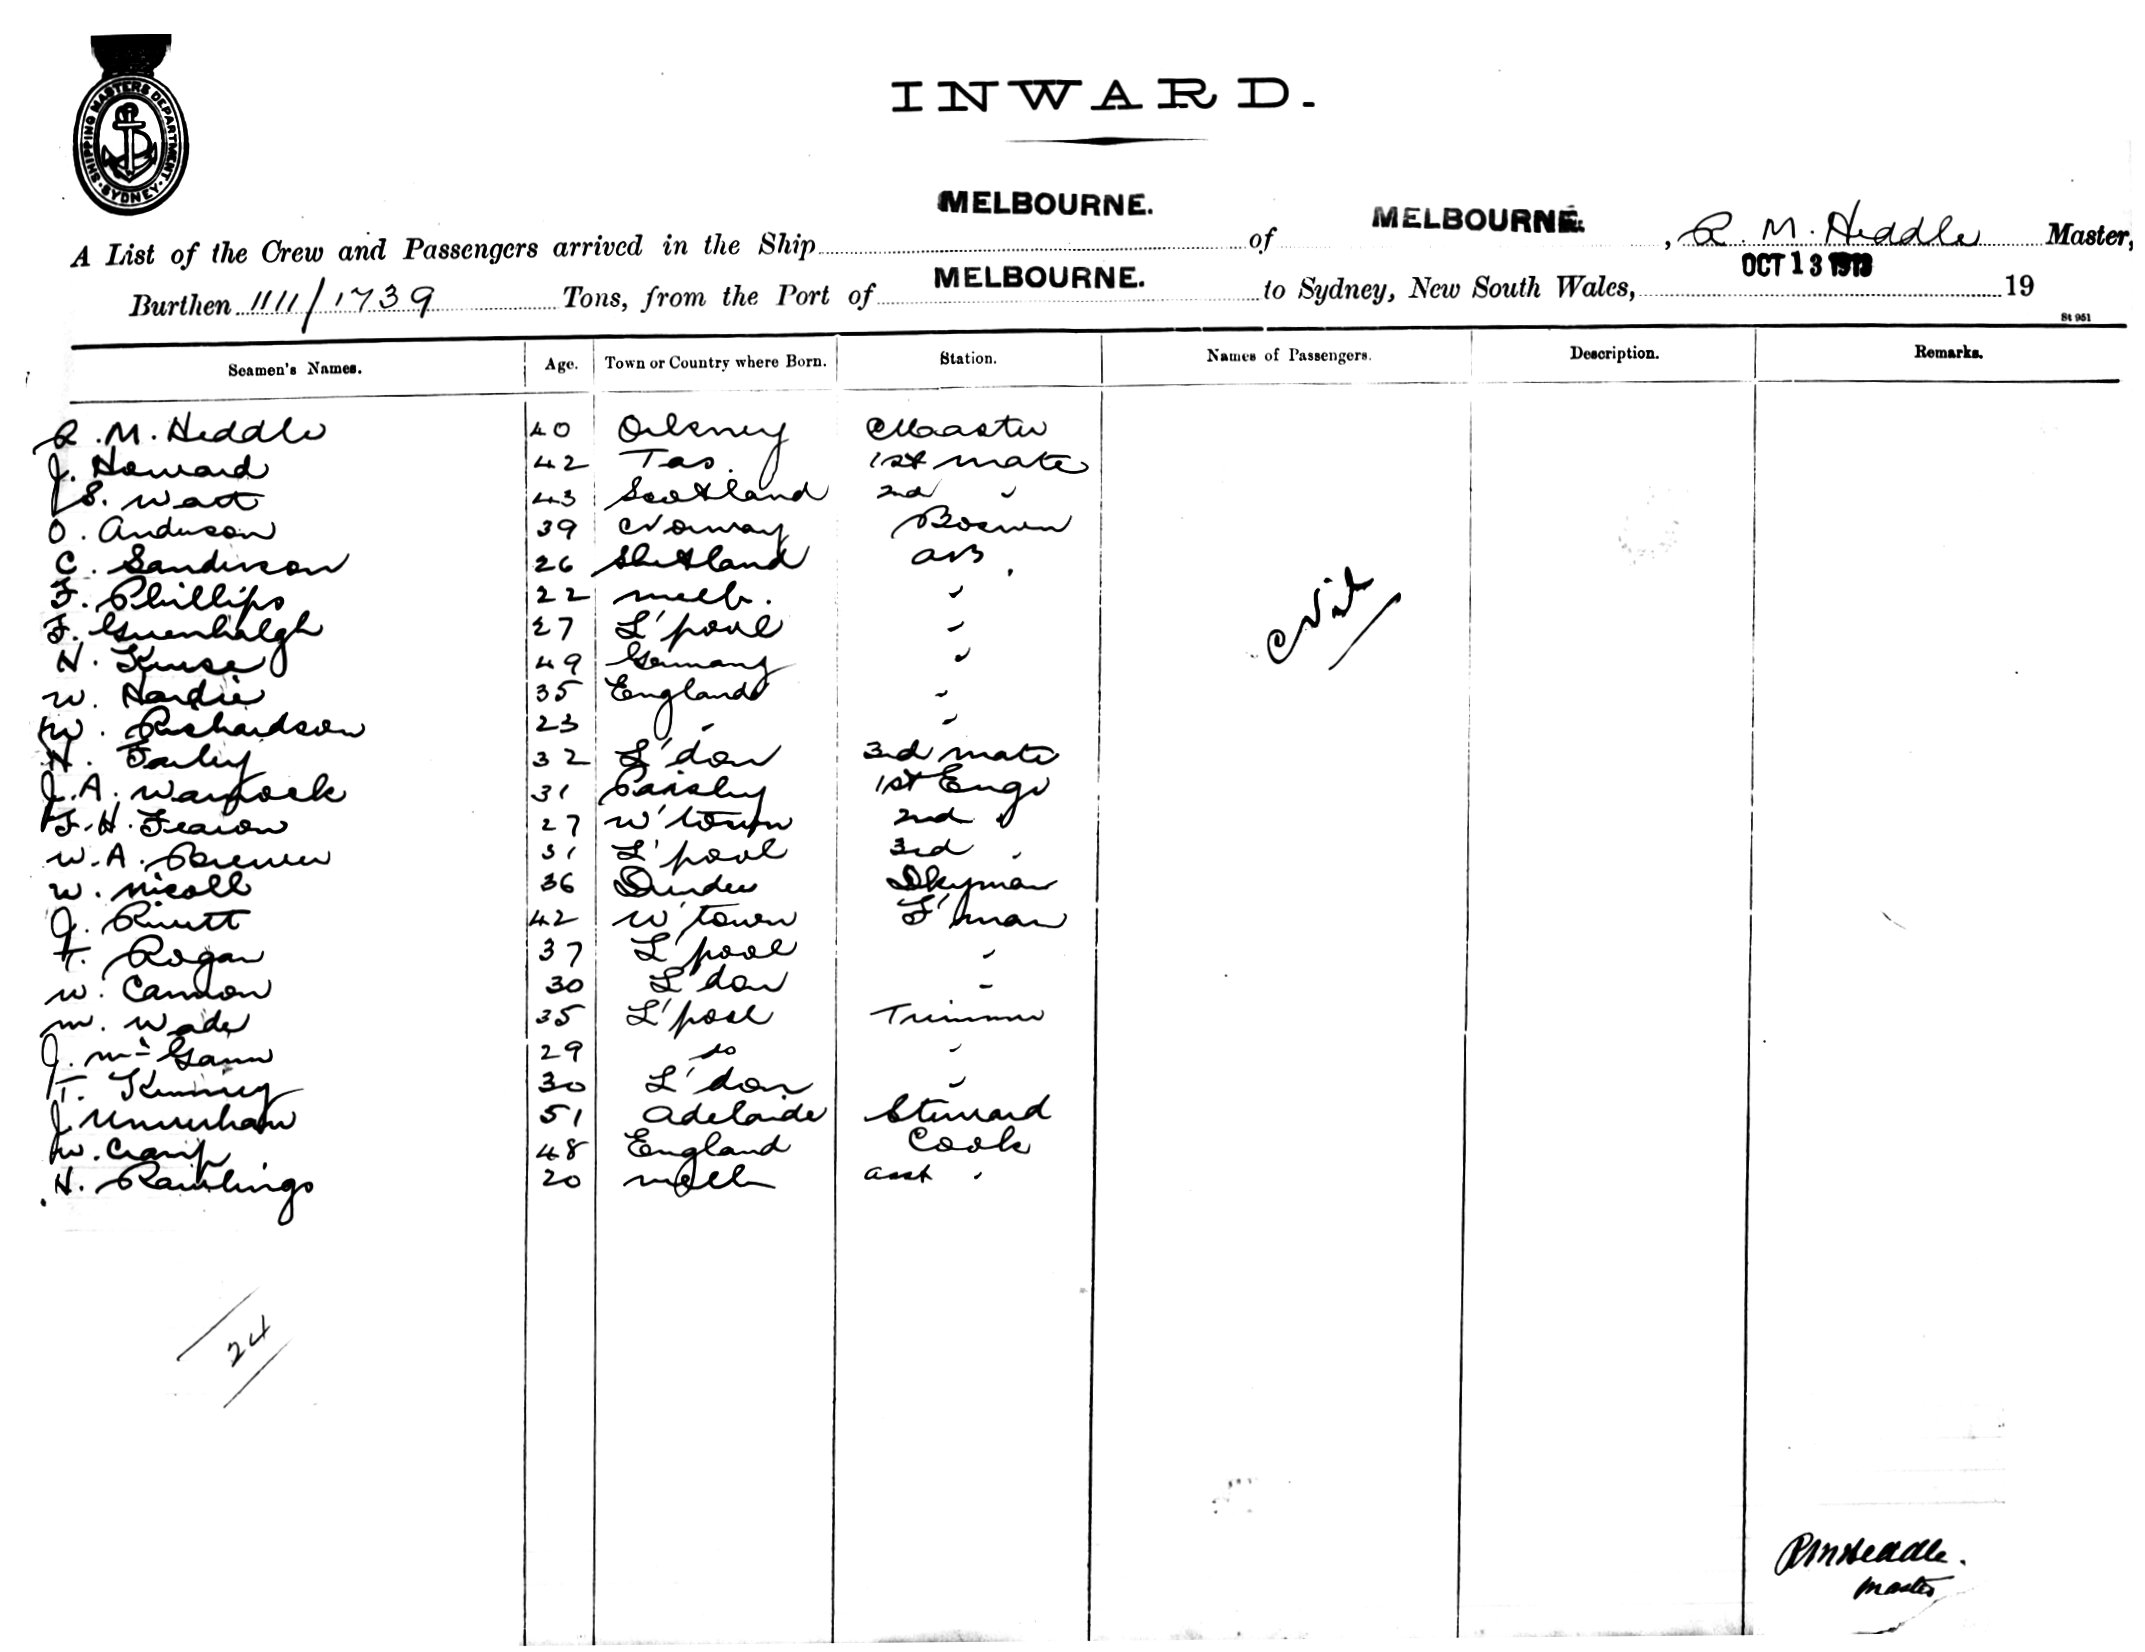 SHIPPING MASTERS DEPARTMENT
SYDNEY
INWARD.
A List of the Crew and Passengers arrived in the Ship MELBOURNE. of MELBOURNE. , R. M. Heddle Master,
Burthen 1111/1739 Tons, from the Port of MELBOURNE. to Sydney, New South Wales, OCT 13 1913 19
St 951
Seamen's Names. Age. Town or Country where Born. Station. Names of Passengers. Description. Remarks.
R. M. Heddle 40 Orkney Master
J. Howard 42 Tas. 1st mate
J S. Watt 43 Scotland 2nd "
O. Anderson 39 Norway Bosun
C. Sanderson 26 Shetland AB
F. Phillips 22 Melb. "
F. Greenhalgh 27 L'pool "
H. Kruse 49 Germany "
W. Hardie 35 England "
W. Richardson 23 " "
H. Farley 32 L'don 3rd mate
J. A. Warnock 31 Paisley 1st Engr
F. H. Fearon 27 W'town 2nd "
W. A. Brewer 31 L'pool 3rd "
W. Nicoll 36 Dundee Dkyman
J. 42 W'town F'man
T. Rogan 37 L'pool "
W. Cannon 30 L'don "
M. Wade 35 L'pool Trimmer
J. McGann 29 do "
T. 30 L'don "
J. 51 Adelaide Steward
W. Cramp 48 England Cook
H. Rawlings 20 Melb Asst "
Nil
24
RM Heddle.
Master